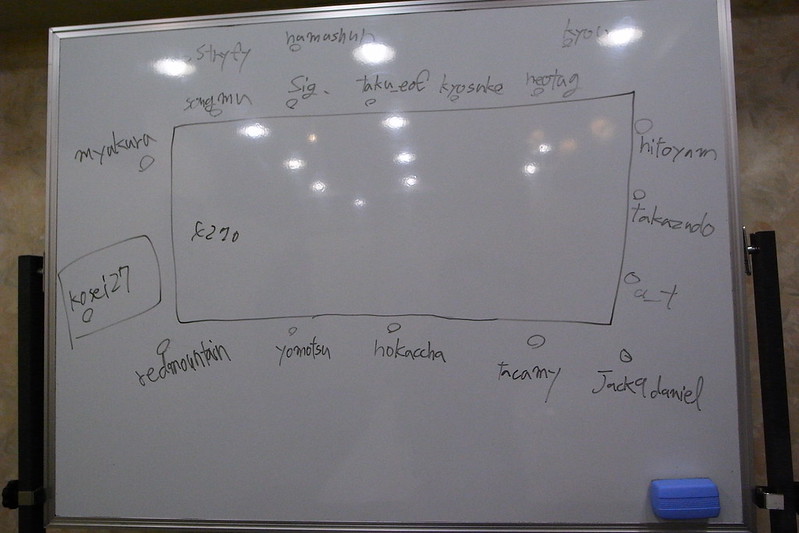 hamashun
kyou
stryfy
songmu
Sig.
taku_eof
kyosuke
neotag
myakura
hitoyam
takazudo
kosei27
a_t
redmountain
yomotsu
hokaccha
tacamy
Jack9daniel